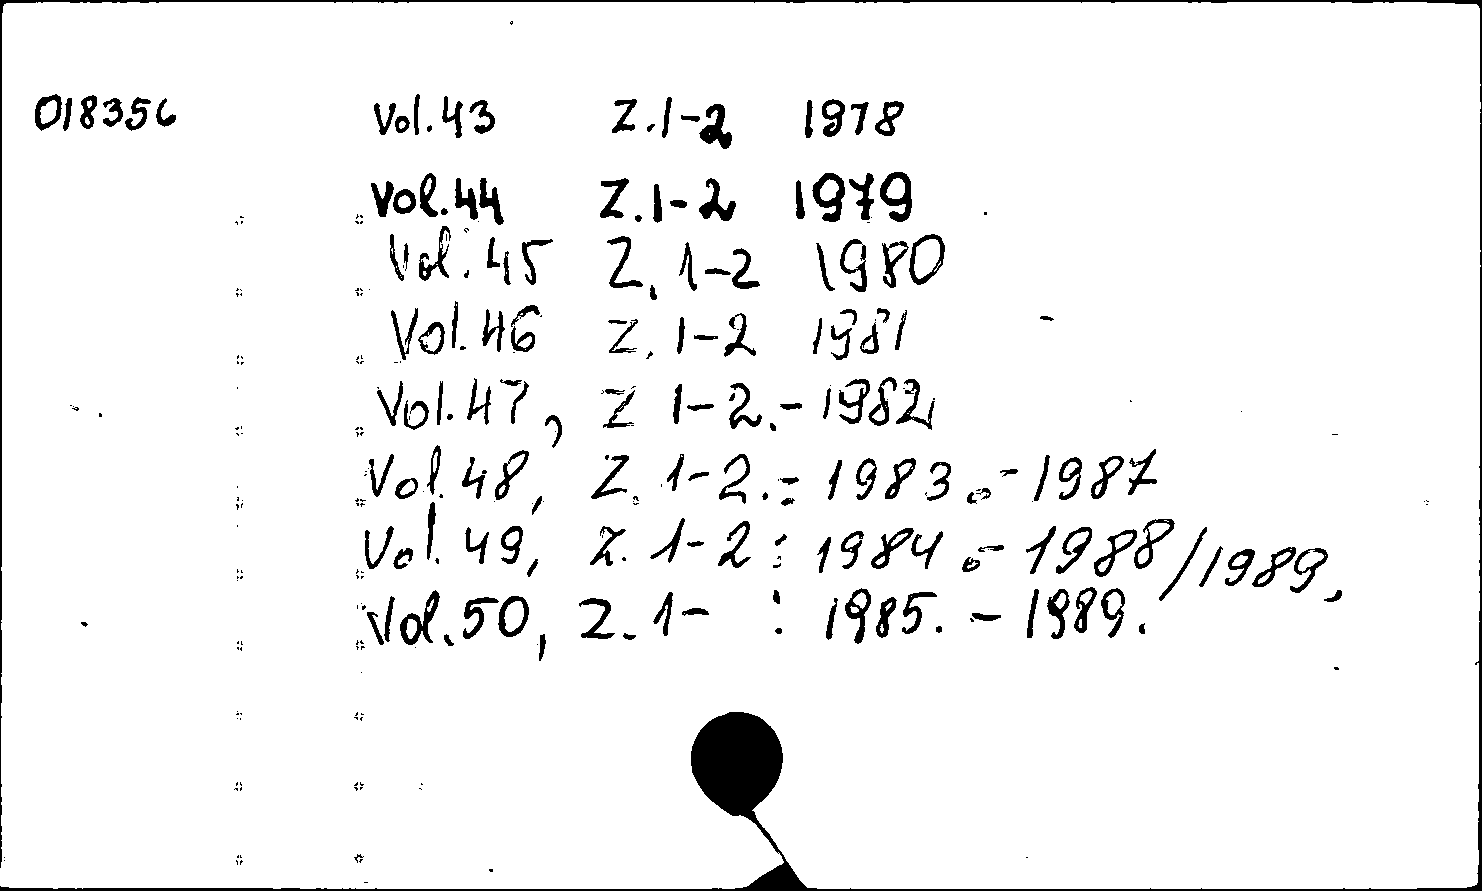 018356 Vol.43 Z.1-2 1978
Vol.44 Z.1-2 1979
Vol.45 Z.1-2 1980
Vol.46 Z.1-2 1981
Vol.47, Z 1-2.- 1982
Vol.48, Z.1-2.: 1983.-1987
Vol.49, Z.1-2: 1984.-1988/1989.
Vol.50, Z.1- : 1985.-1989.